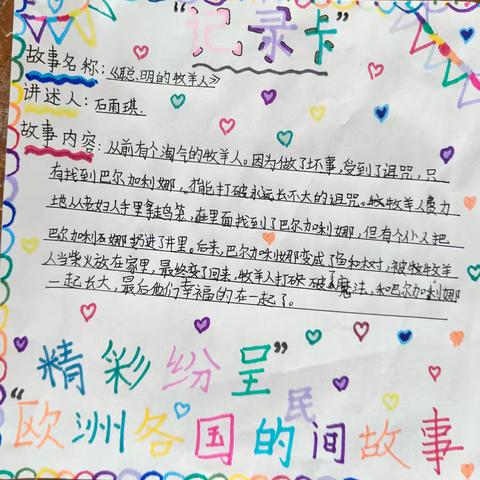 “记录卡”
故事名称：《聪明的牧羊人》
讲述人：石雨琪.
故事内容：从前有个淘气的牧羊人。因为做了坏事，受到了诅咒，只
有找到巴尔加利娜，才能打破永远长不大的诅咒。牧羊人费力
地从老妇人手里拿鸟笼，在里面找到了巴尔加利娜，但有个仆人把
巴尔加利娜扔进了井里。后来，巴尔加利娜变成了鱼和树，被牧羊
人当柴火放在家里，最终变了回来，牧羊人打破了魔法，和巴尔加利娜
一起长大，最后他们幸福的在一起了。
精彩纷呈”
“欧洲各国的民间故事